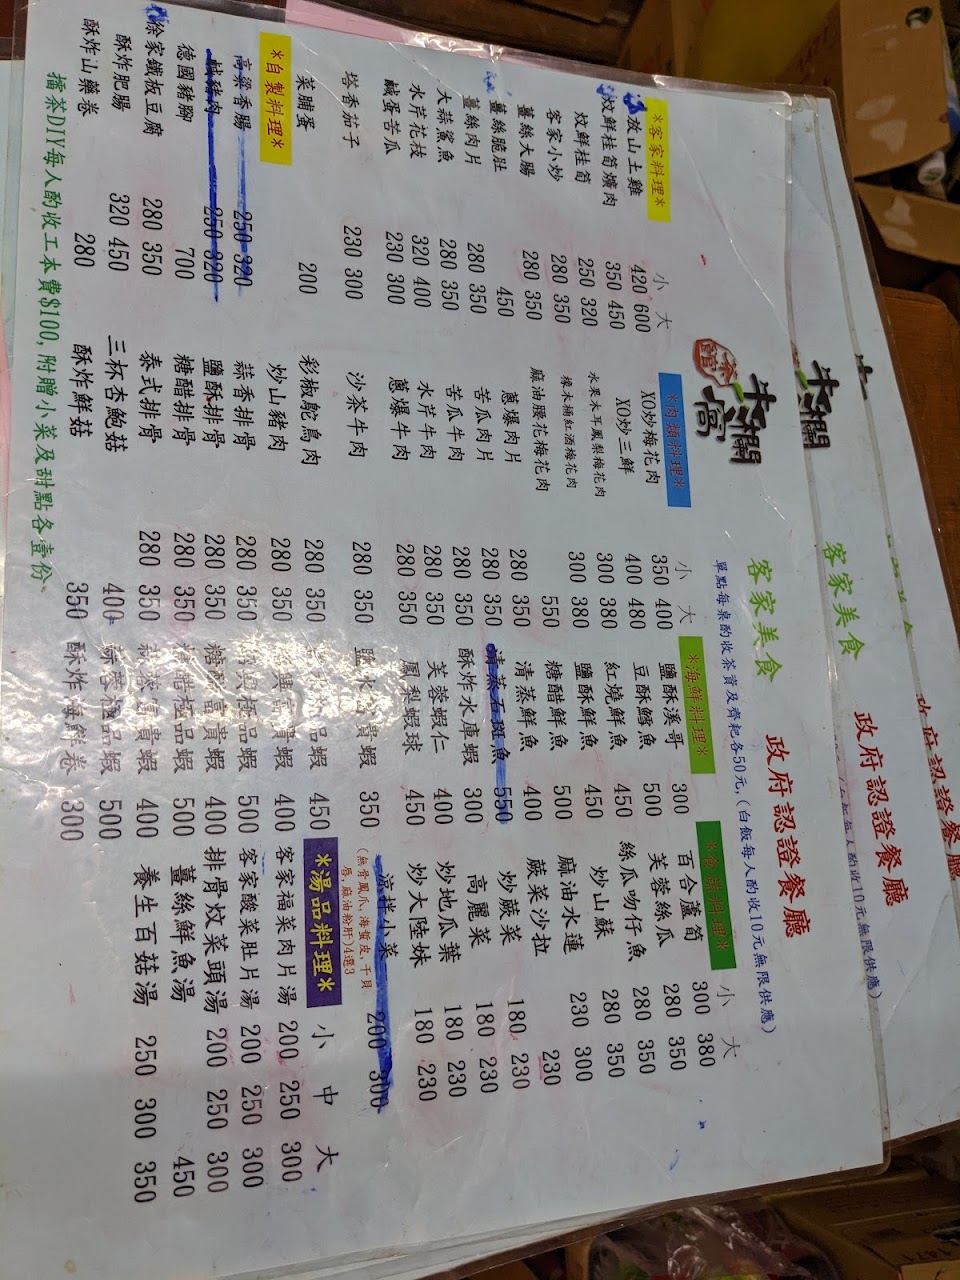 牛欄窩
茶館
客家美食
政府認證餐廳
單點每桌酌收茶資及齊粑各50元,(白飯每人酌收10元無限供應)
*客家料理*
小 大
放山土雞 420 600
炆鮮桂筍爌肉 350 450
炆鮮桂筍 250 320
客家小炒 280 350
薑絲大腸 280 350
薑絲脆肚 450
薑絲肉片 280 350
大蒜鯊魚 280 350
水芹花枝 320 400
鹹蛋苦瓜 230 300
塔香茄子 230 300
菜脯蛋 200
*自製料理*
高粱香腸 250 320
鹹豬肉 250 320
德國豬腳 700
徐家鐵板豆腐 280 350
酥炸肥腸 320 450
酥炸山藥卷 280
*肉類料理*
小 大
XO炒梅花肉 350 400
XO炒三鮮 400 480
水果木耳鳳梨梅花肉 300 380
橡木桶紅酒梅花肉 300 380
麻油腰花梅花肉 550
蔥爆肉片 280 350
苦瓜肉片 280 350
苦瓜牛肉 280 350
水芹牛肉 280 350
蔥爆牛肉 280 350
沙茶牛肉 280 350
彩椒鴕鳥肉 280 350
炒山豬肉 280 350
蒜香排骨 280 350
鹽酥排骨 280 350
糖醋排骨 280 350
泰式排骨 280 350
三杯杏鮑菇 400
酥炸鮮菇 350
*海鮮料理*
鹽酥溪哥 300
豆酥鱈魚 500
紅燒鮮魚 450
鹽酥鮮魚 450
糖醋鮮魚 500
清蒸鮮魚 400
清蒸石斑魚 550
酥炸水庫蝦 300
芙蓉蝦仁 400
鳳梨蝦球 450
鹽水富貴蝦 350
品蝦 450
貴蝦 400
極品蝦 500
糖醋富貴蝦 400
糖醋極品蝦 500
富貴蝦 400
蒜蓉極品蝦 500
酥炸海鮮卷 300
料理*
小 大
百合蘆筍 300 380
芙蓉絲瓜 280 350
絲瓜吻仔魚 280 350
炒山蘇 280 350
麻油水蓮 230 300
蕨菜沙拉 230
炒蕨菜 180 230
高麗菜 180 230
炒地瓜葉 180 230
炒大陸妹 180 230
涼拌小菜 200 300
(無骨鳳爪,海蜇皮,干貝唇,麻油粉肝)4選3
*湯品料理*
小 中 大
客家福菜肉片湯 200 250 300
客家酸菜肚片湯 200 250 300
排骨炆菜頭湯 200 250 300
薑絲鮮魚湯 450
養生百菇湯 250 300 350
擂茶DIY每人酌收工本費$100,附贈小菜及甜點各壹份、